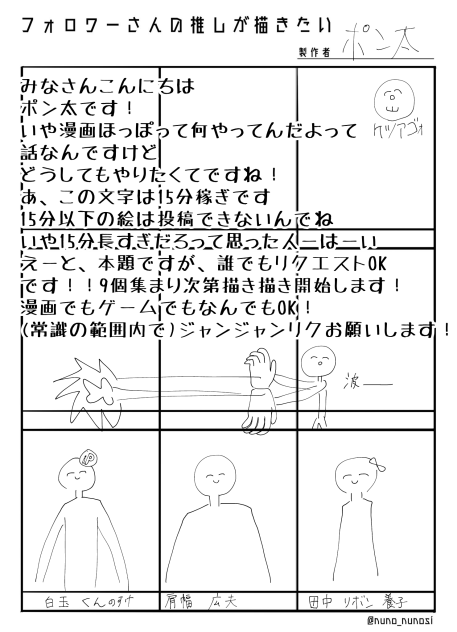 フォロワーさんの推しが描きたい
製作者 ポン太
みなさんこんにちは
ポン太です!
いや漫画ほっぽって何やってんだよって
話なんですけど
どうしてもやりたくてですね!
あ、この文字は15分稼ぎです
15分以下の絵は投稿できないんでね
いや15分長すぎだろって思った人ーはーい
えーと、本題ですが、誰でもリクエストOK
です!!9個集まり次第描き描き開始します!
漫画でもゲームでもなんでもOK!
(常識の範囲内で)ジャンジャンリクお願いします!
ケツアゴォ
波――
白玉 くんのすけ
肩幅 広夫
田中 リボン 養子
@nuno_nunosi